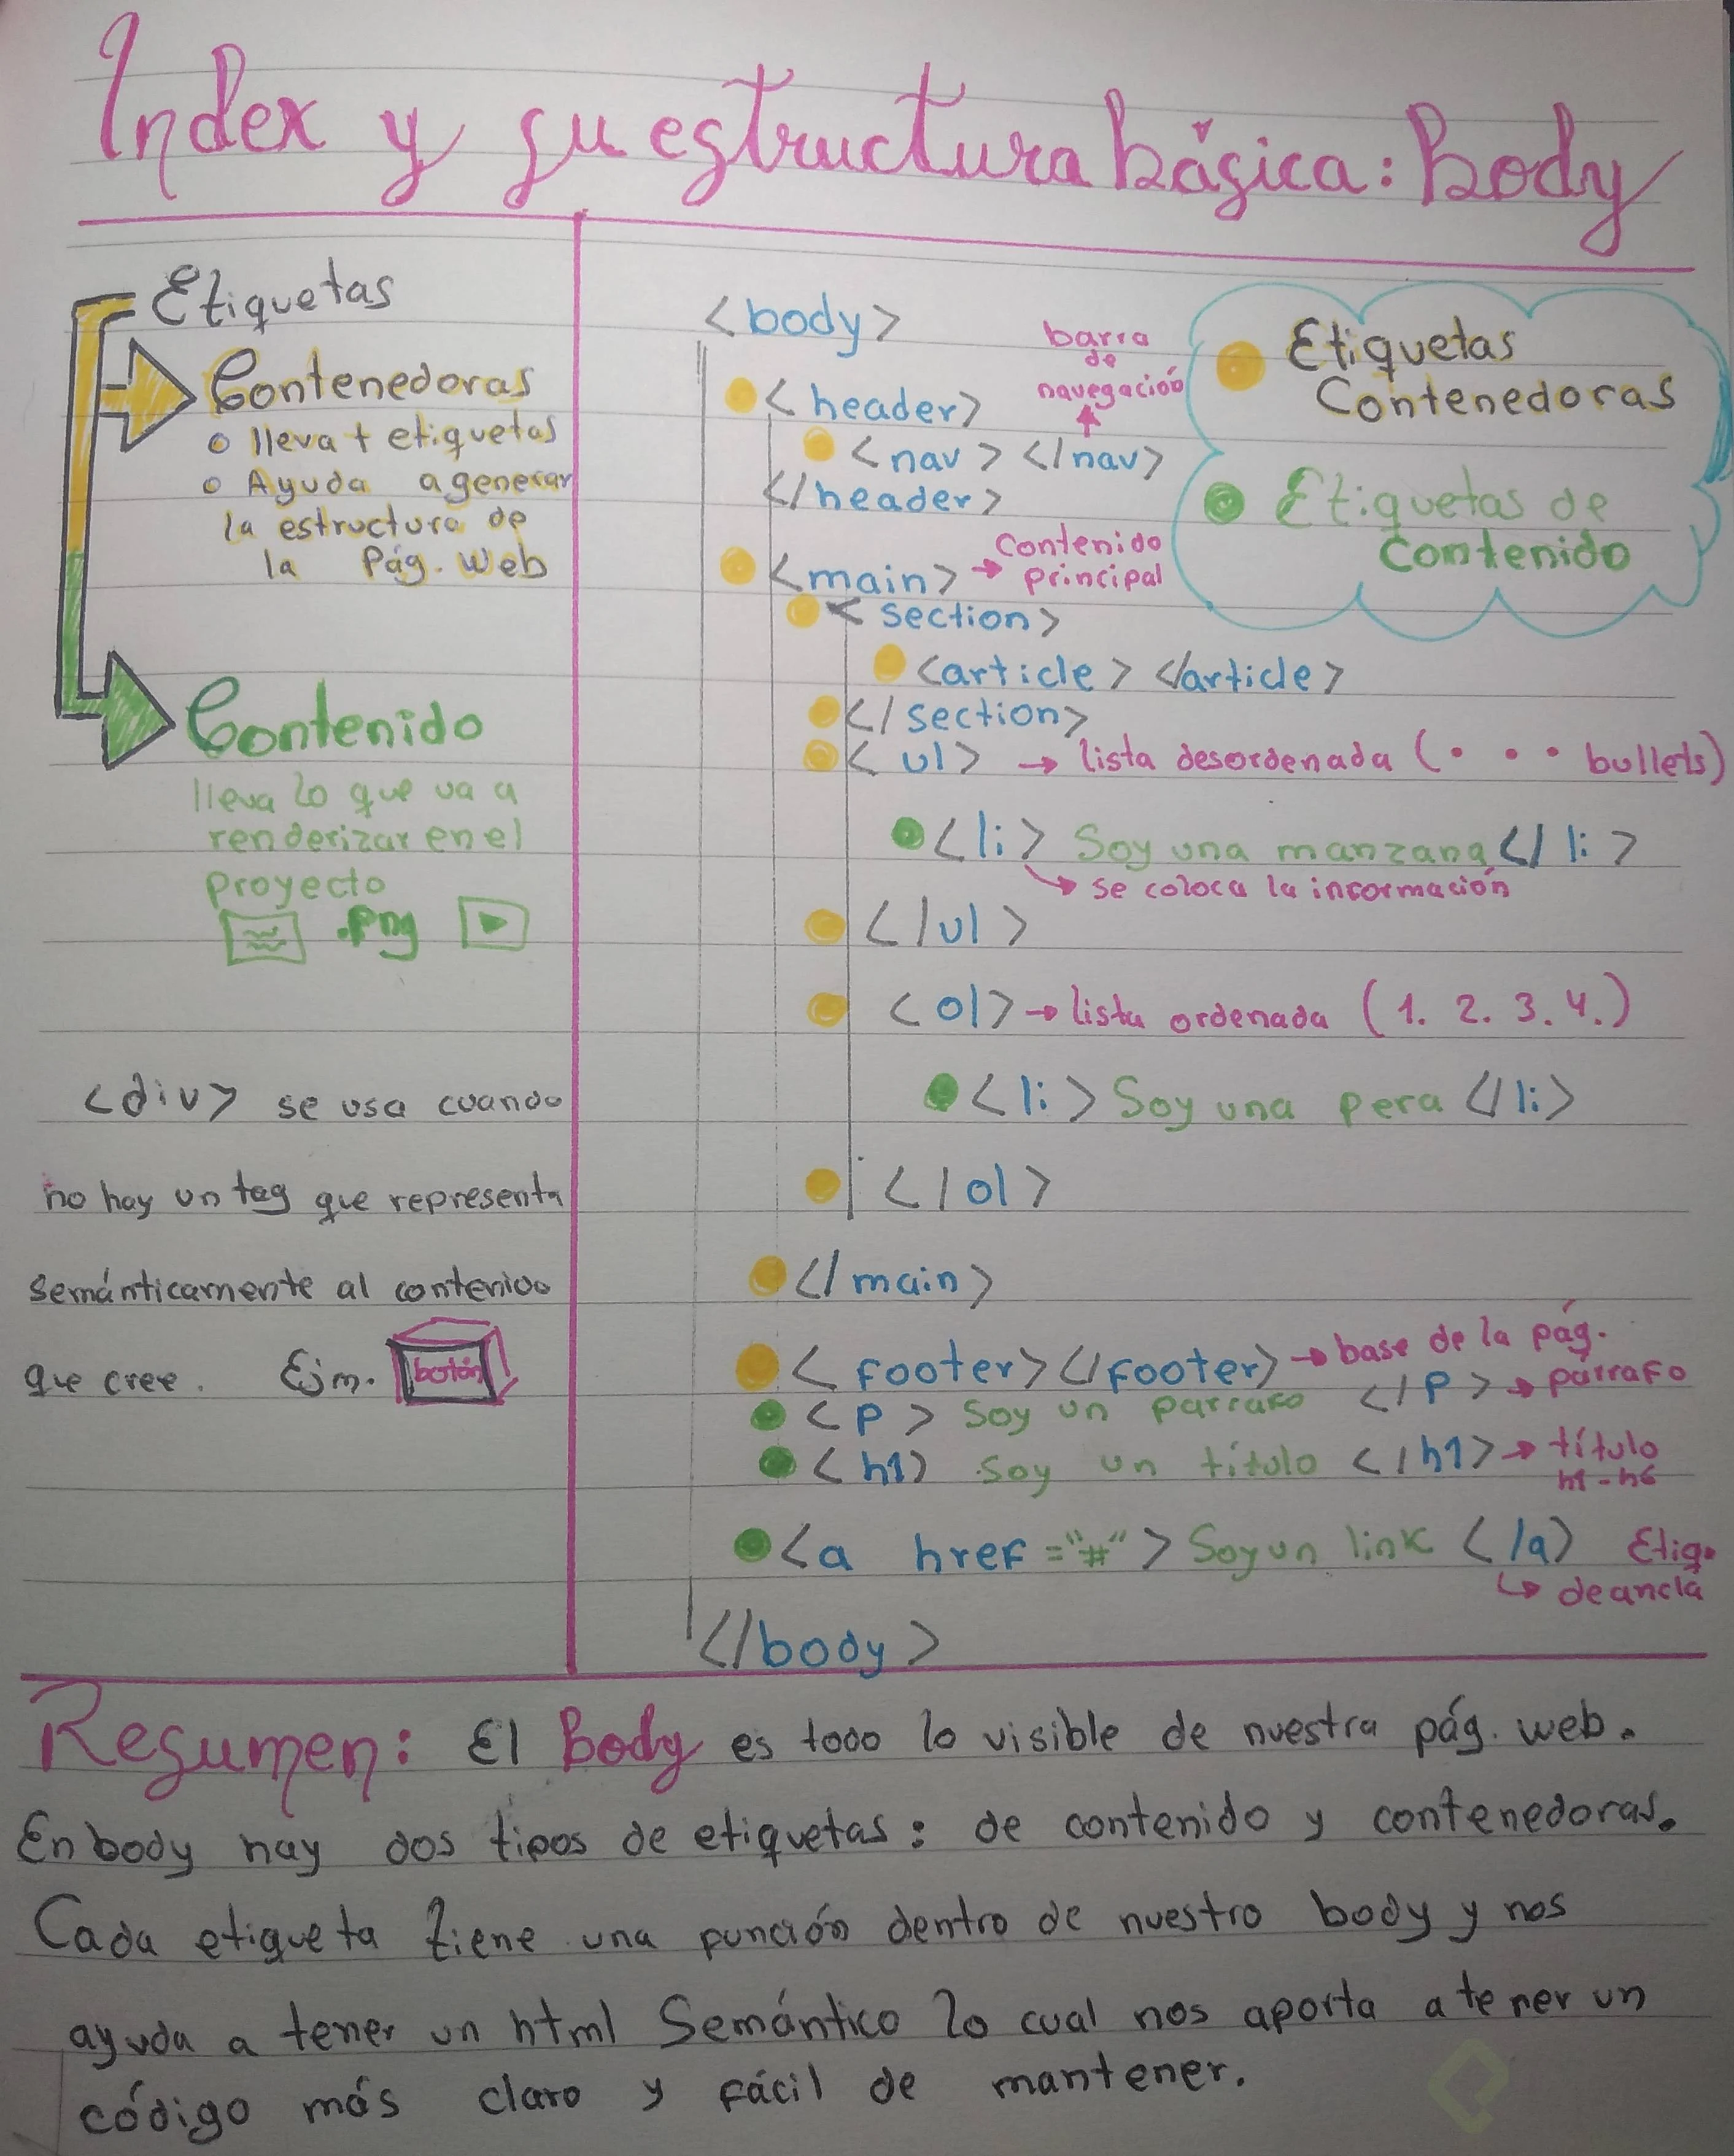 Index y su estructura básica: Body
Etiquetas
Contenedoras
o lleva + etiquetas
o Ayuda a generar
la estructura de
la Pág. Web
Contenido
lleva lo que va a
renderizar en el
proyecto
.png
<div> se usa cuando
no hay un tag que representa
semánticamente al contenido
que cree. Ejm. botón
<body>
barra
de
navegación
<header>
<nav> </nav>
</header>
<main> → Contenido
principal
<section>
<article> </article>
</section>
<ul> → lista desordenada (• • • bullets)
<li> Soy una manzana </li>
↳ se coloca la información
</ul>
<ol> → lista ordenada (1. 2. 3. 4.)
<li> Soy una pera </li>
</ol>
</main>
<footer></footer> → base de la pág.
<p> Soy un parrafo </p> → párrafo
<h1> Soy un título </h1> → título
h1-h6
<a href="#"> Soy un link </a> Etiq.
↳ de ancla
</body>
Etiquetas
Contenedoras
Etiquetas de
Contenido
Resumen: El Body es todo lo visible de nuestra pág. web.
En body hay dos tipos de etiquetas: de contenido y contenedoras.
Cada etiqueta tiene una función dentro de nuestro body y nos
ayuda a tener un html Semántico lo cual nos aporta a tener un
código más claro y fácil de mantener.